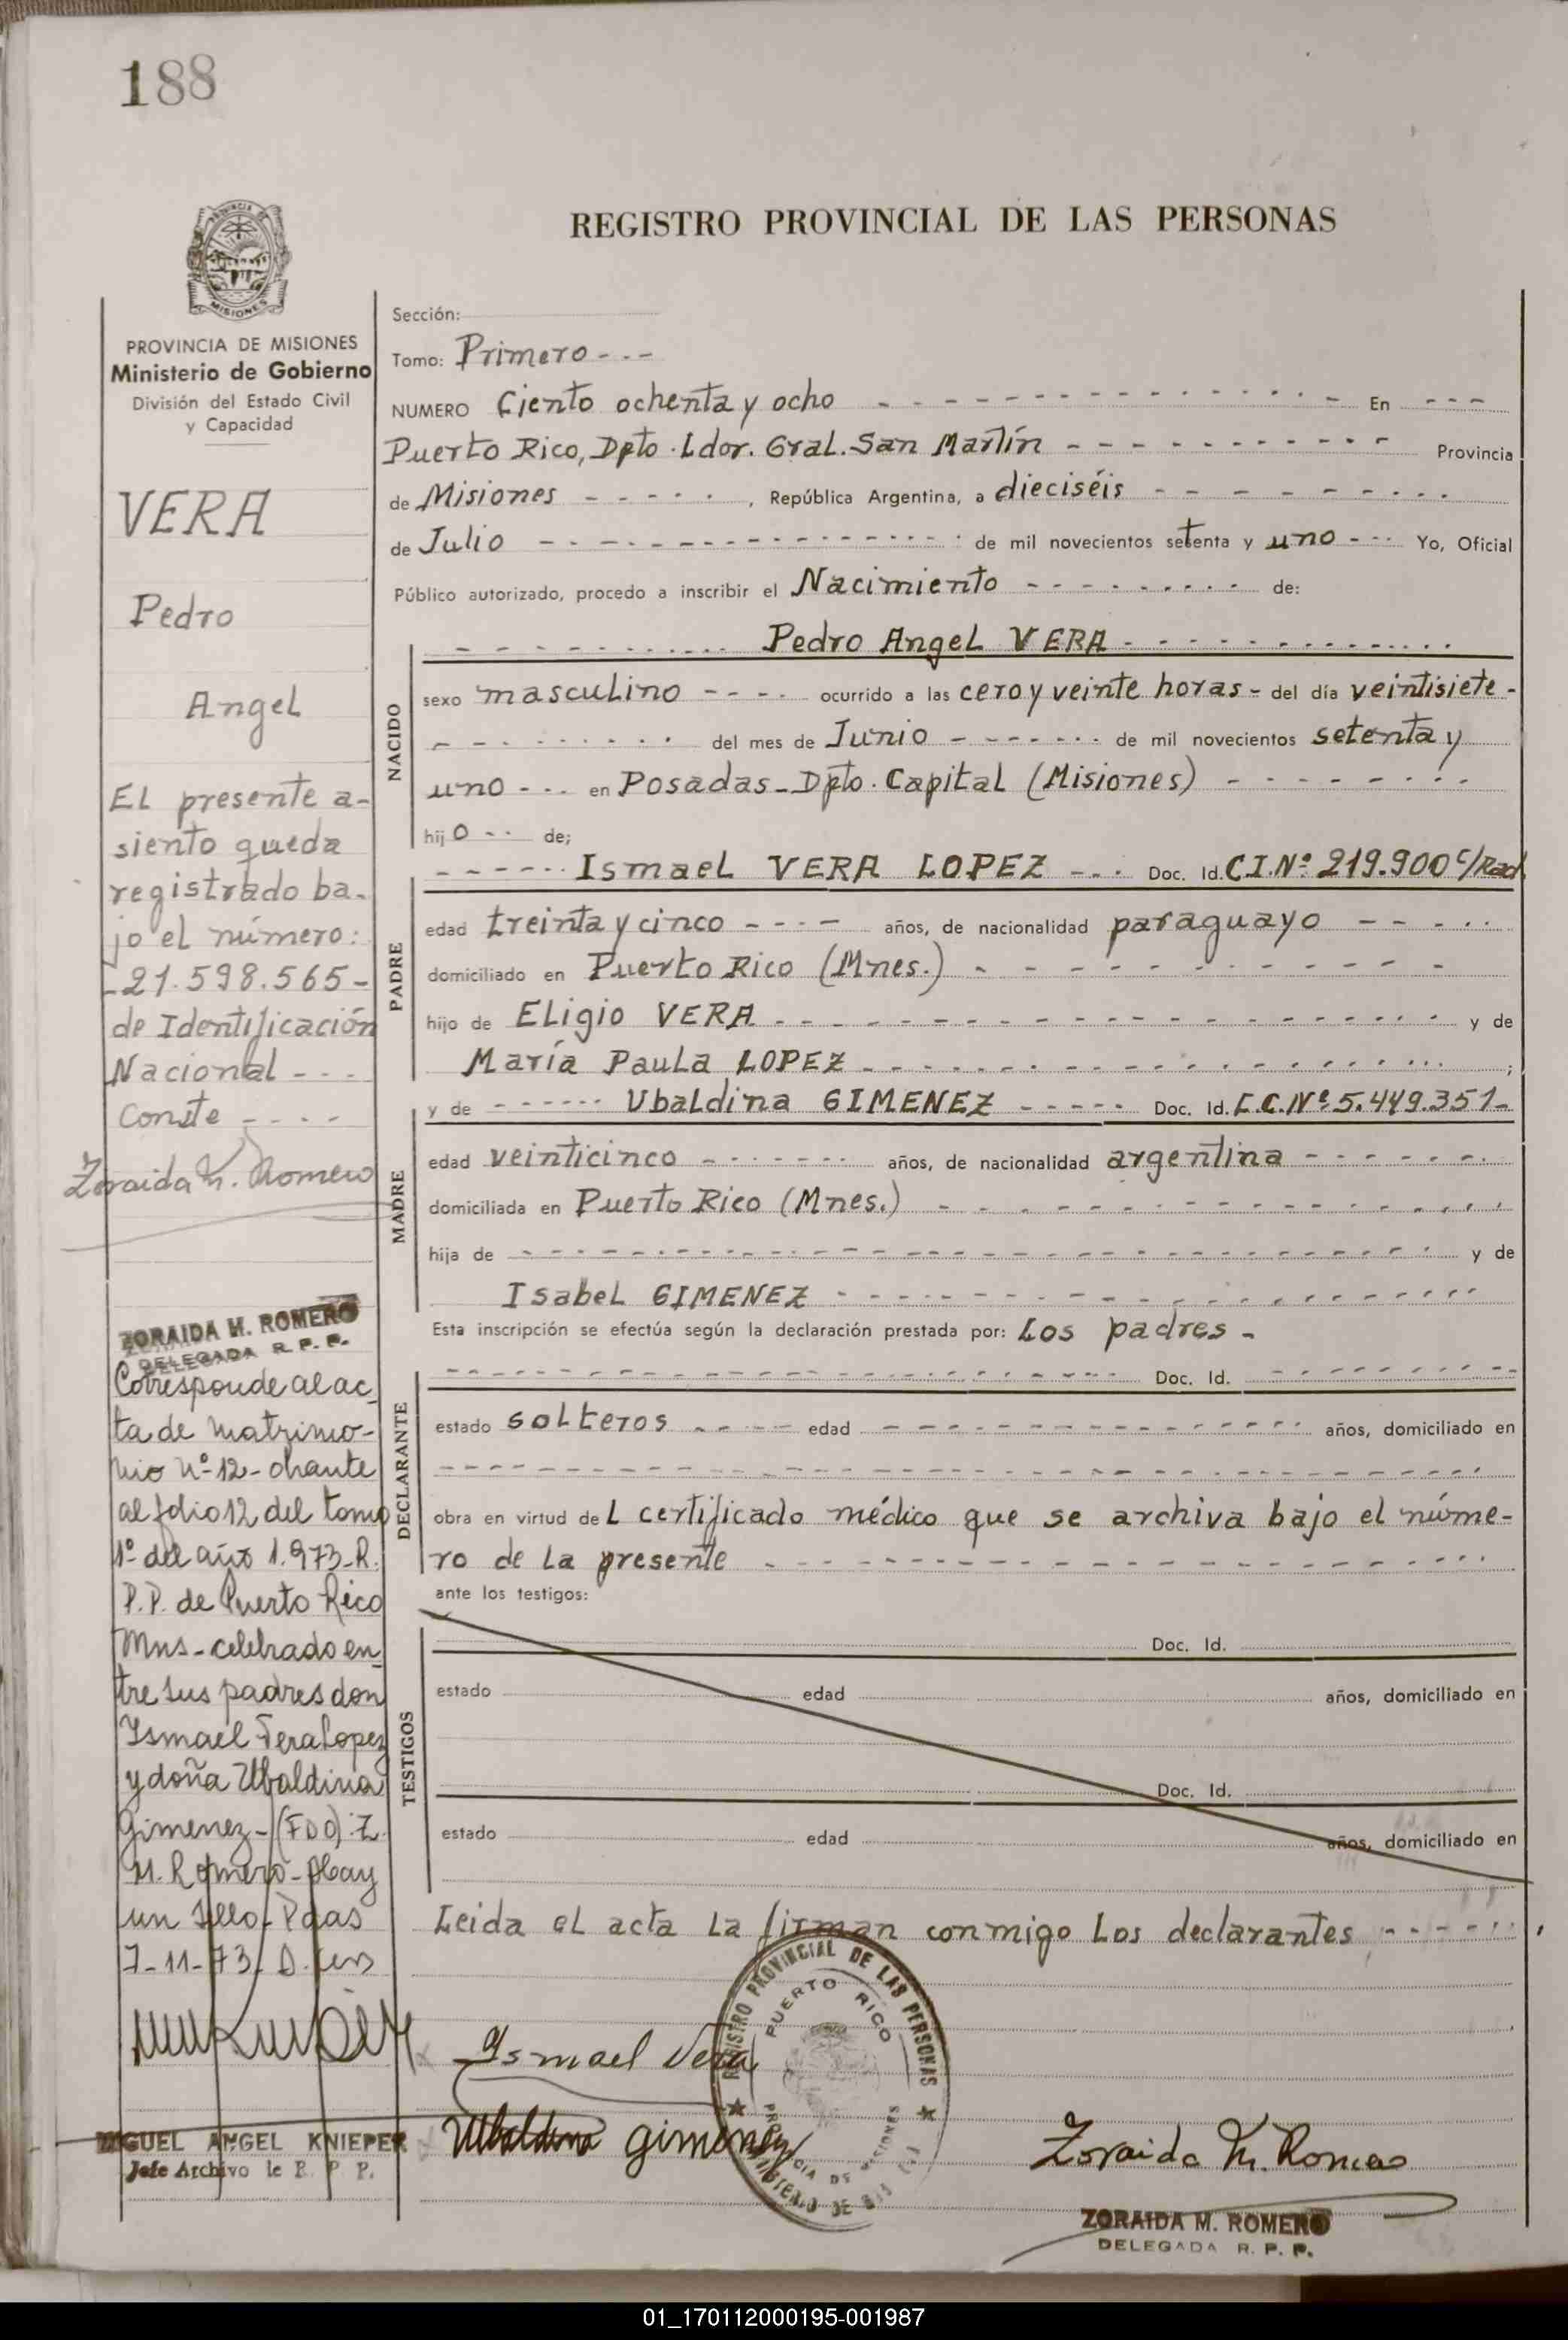 188
REGISTRO PROVINCIAL DE LAS PERSONAS
PROVINCIA DE
MISIONES
PROVINCIA DE MISIONES
Ministerio de Gobierno
División del Estado Civil
y Capacidad
VERA
Pedro
Angel
El presente a-
siento queda
registrado ba-
jo el número:
-21.598.565-
de Identificación
Nacional - - -
Conste - - - -
Zoraida M. Romero
ZORAIDA M. ROMERO
DELEGADA R. P. P.
Corresponde al ac
ta de matrimo-
nio Nº-12- obrante
al folio 12 del tomo
1º del año 1.973-R.
P.P. de Puerto Rico
Mns - celebrado en
tre sus padres don
Ismael Vera Lopez
y doña Ubaldina
Gimenez - (FDO) : Z.
M. Romero - Hay
un sello - Pdas
7-11-73.
MIGUEL ANGEL KNIEPER
Jefe Archivo de R. P. P.
Sección:
Tomo: Primero - - -
NUMERO Ciento ochenta y ocho - - - En - - -
Puerto Rico, Dpto. Ldor. Gral. San Martín - - - Provincia
de Misiones - - - , República Argentina, a dieciséis - - -
de Julio - - - de mil novecientos setenta y uno - - - Yo, Oficial
Público autorizado, procedo a inscribir el Nacimiento - - - de:
- - - Pedro Angel VERA - - -
NACIDO
sexo masculino - - - ocurrido a las cero y veinte horas - del día veintisiete -
- - - del mes de Junio - - - de mil novecientos setenta y
uno - - - en Posadas - Dpto. Capital (Misiones) - - -
hijo - - de;
- - - Ismael VERA LOPEZ - - - Doc. Id. C.I.Nº 219.900 c/Rad.
PADRE
edad treinta y cinco - - - años, de nacionalidad paraguayo - - -
domiciliado en Puerto Rico (Mnes.) - - -
hijo de Eligio VERA - - - y de
María Paula LOPEZ - - - ;
y de - - - Ubaldina GIMENEZ - - - Doc. Id. L.C.Nº 5.449.351-
MADRE
edad veinticinco - - - años, de nacionalidad argentina - - -
domiciliada en Puerto Rico (Mnes.) - - -
hija de - - - y de
Isabel GIMENEZ - - -
Esta inscripción se efectúa según la declaración prestada por: Los padres -
- - - Doc. Id. - - -
DECLARANTE
estado solteros - - - edad - - - años, domiciliado en
- - -
obra en virtud del certificado médico que se archiva bajo el núme-
ro de la presente - - -
ante los testigos:
TESTIGOS
Doc. Id.
estado edad años, domiciliado en
Doc. Id.
estado edad años, domiciliado en
Leida el acta la firman conmigo los declarantes - - -
REGISTRO PROVINCIAL DE LAS PERSONAS
PUERTO RICO
PROVINCIA DE MISIONES
Ismael Vera
Ubaldina gimenez
Zoraida M. Romero
ZORAIDA M. ROMERO
DELEGADA R. P. P.
01_170112000195-001987